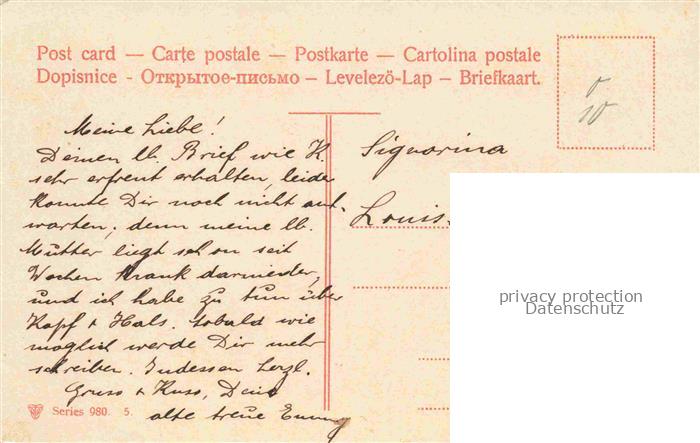 Post card — Carte postale — Postkarte — Cartolina postale
Dopisnice - Открытое-письмо – Levelezö-Lap – Briefkaart.
Meine Liebe!
Deinen lb. Brief wie K.
sehr erfreut erhalten, leider
konnte Dir noch nicht ant-
worten, denn meine lb.
Mutter liegt schon seit
Wochen krank darnieder,
und ich habe zu tun über
Kopf + Hals. sobald wie
möglich werde Dir mehr
schreiben. Indessen herzl.
Gruss + Kuss, Deine
alte treue Emmy
Series 980. 5.
Signorina
Louis
privacy protection
Datenschutz